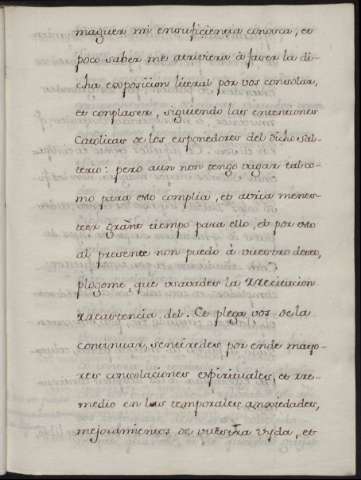 maguer mi ensuficiencia conosca, et
poco saber me atreviera á faser la di-
cha exposicion literal por vos consolar,
et conplaser, siguiendo las intenciones
Catolicas de los esponedores del dicho Sal-
terio: pero aun non tengo vagar tal co-
mo para esto complia, et avria menes-
ter grant tiempo para ello, et por esto
al presente non puedo á vuestro deseo,
plogome, que usavades la
del. Et plega vos de la
continuar, sentiredes por ende mayo-
res consolaciones espirituales, et rre-
medio en las temporales ansiedades,
mejoramientos de vuestra vyda, et